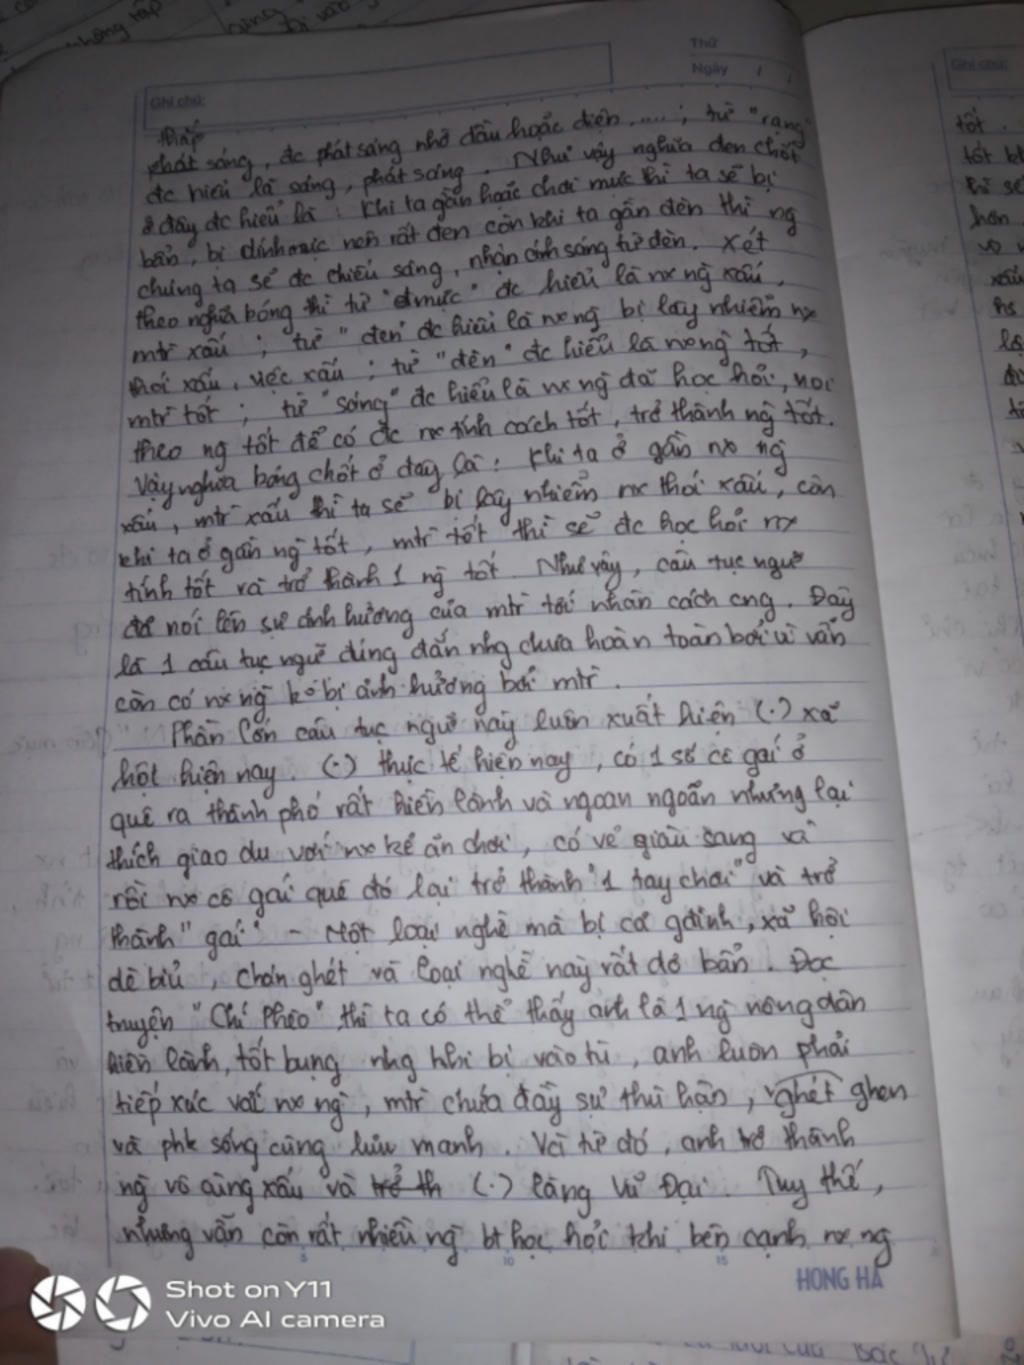 Thứ
Ngày / /
Ghi chú:
thắp
phát sáng, đc phát sáng nhờ dầu hoặc điện.....; từ "rạng"
đc hiểu là sáng, phát sáng. Như vậy nghĩa đen chốt
ở đây đc hiểu là: Khi ta gần hoặc chơi mực thì ta sẽ bị
bẩn, bị dính mực nên rất đen còn khi ta gần đèn thì ng
chúng ta sẽ đc chiếu sáng, nhận ánh sáng từ đèn. Xét
theo nghĩa bóng thì từ "mực" đc hiểu là nx ng xấu,
mtr xấu; từ "đen" đc hiểu là nx ng bị lây nhiễm nx
thói xấu, việc xấu; từ "đèn" đc hiểu là nx ng tốt,
mtr tốt; từ "sáng" đc hiểu là nx ng đã học hỏi, noi
theo ng tốt để có đc nx tính cách tốt, trở thành ng tốt.
Vậy nghĩa bóng chốt ở đây là: Khi ta ở gần nx ng
xấu, mtr xấu thì ta sẽ bị lây nhiễm nx thói xấu, còn
khi ta ở gần ng tốt, mtr tốt thì sẽ đc học hỏi nx
tính tốt và trở thành 1 ng tốt. Như vậy, câu tục ngữ
đã nói lên sự ảnh hưởng của mtr tới nhân cách cng. Đây
là 1 câu tục ngữ đúng đắn nhg chưa hoàn toàn bởi vì vẫn
còn có nx ng ko bị ảnh hưởng bởi mtr.
Phần lớn câu tục ngữ này luôn xuất hiện (.) xã
hội hiện nay. (.) thực tế hiện nay, có 1 số cô gái ở
quê ra thành phố rất hiền lành và ngoan ngoãn nhưng lại
thích giao du với nx kẻ ăn chơi, có vẻ giàu sang và
rồi nx cô gái quê đó lại trở thành "1 tay chơi" và trở
thành "gái" - Một loại nghề mà bị cả gđình, xã hội
dè bỉu, chán ghét và loại nghề này rất dơ bẩn. Đọc
truyện "Chí Phèo" thì ta có thể thấy anh là 1 ng nông dân
hiền lành, tốt bụng nhg khi bị vào tù, anh luôn phải
tiếp xúc với nx ng, mtr chứa đầy sự thù hận, ghét ghen
và phk sống cùng lưu manh. Và từ đó, anh trở thành
ng vô cùng xấu và trở th (.) làng Vũ Đại. Tuy thế,
nhưng vẫn còn rất nhiều ng bt học hỏi khi bên cạnh nx ng
HONG HA
Shot on Y11
Vivo AI camera